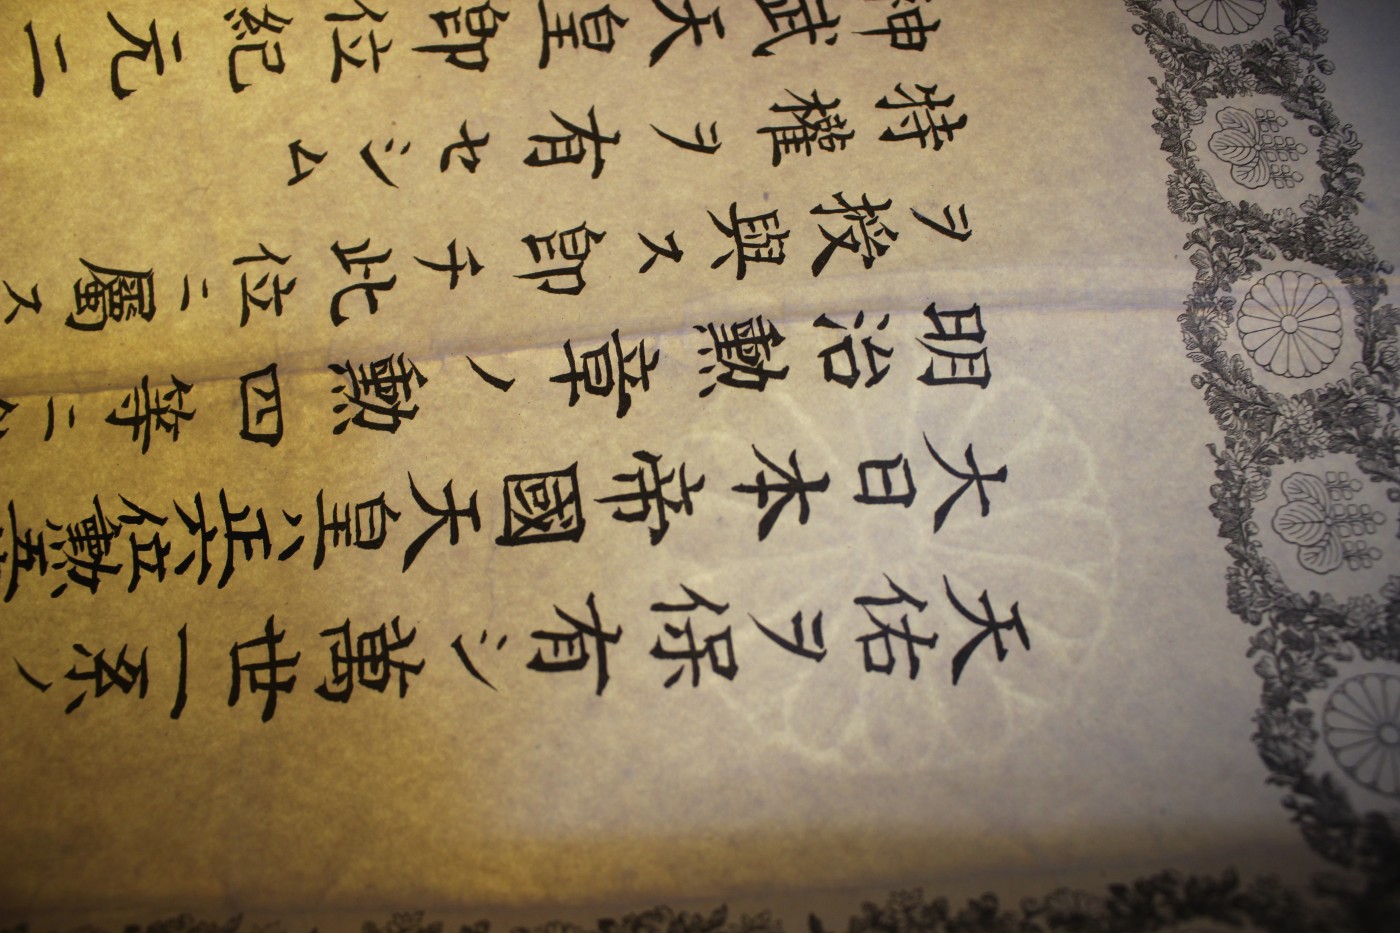 天佑ヲ保有シ萬世一系ノ
大日本帝國天皇ハ正六位勳五
明治勳章ノ勳四等ニ
ヲ授與ス即チ此位ニ屬ス
特權ヲ有セシム
神武天皇即位紀元二